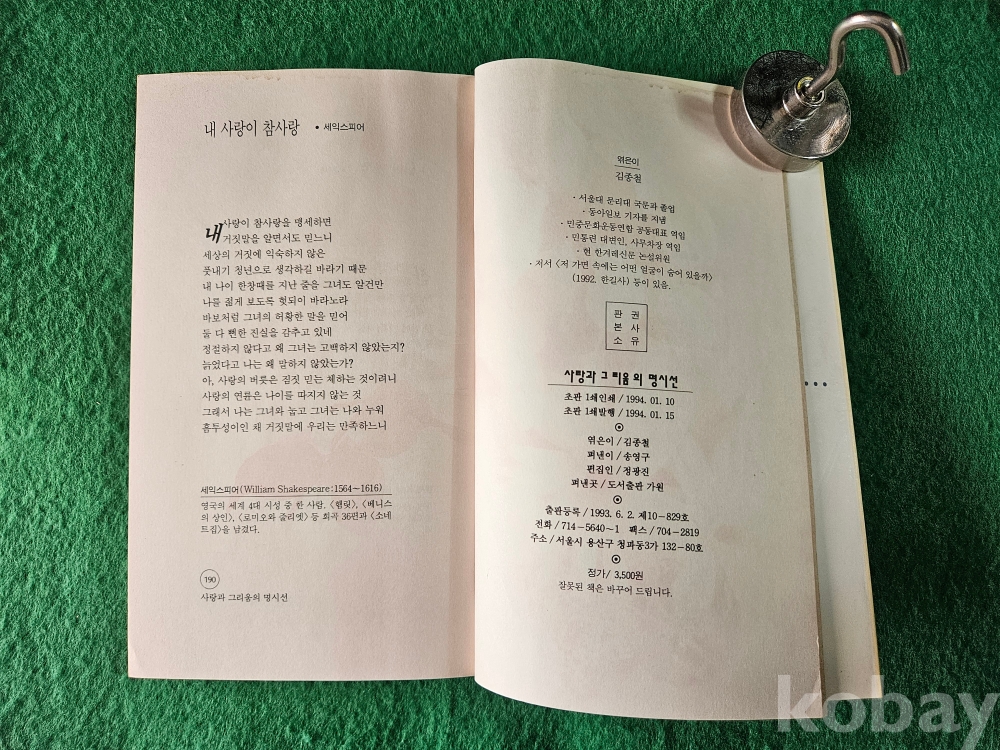 내 사랑이 참사랑 • 세익스피어
내 사랑이 참사랑을 맹세하면
거짓말을 알면서도 믿느니
세상의 거짓에 익숙하지 않은
풋내기 청년으로 생각하길 바라기 때문
내 나이 한창때를 지난 줄을 그녀도 알건만
나를 젊게 보도록 헛되이 바라노라
바보처럼 그녀의 허황한 말을 믿어
둘 다 뻔한 진실을 감추고 있네
정절하지 않다고 왜 그녀는 고백하지 않았는지?
늙었다고 나는 왜 말하지 않았는가?
아, 사랑의 버릇은 짐짓 믿는 체하는 것이려니
사랑의 연륜은 나이를 따지지 않는 것
그래서 나는 그녀와 눕고 그녀는 나와 누워
흠투성이인 채 거짓말에 우리는 만족하느니
세익스피어(William Shakespeare:1564~1616)
영국의 세계 4대 시성 중 한 사람. 〈햄릿〉, 〈베니스
의 상인〉, 〈로미오와 줄리엣〉 등 희곡 36편과 〈소네
트집〉을 남겼다.
190
사랑과 그리움의 명시선
엮은이
김종철
· 서울대 문리대 국문과 졸업
· 동아일보 기자를 지냄
· 민중문화운동연합 공동대표 역임
· 민통련 대변인, 사무차장 역임
· 현 한겨레신문 논설위원
· 저서 〈저 가면 속에는 어떤 얼굴이 숨어 있을까〉
(1992. 한길사) 등이 있음.
판 권
본 사
소 유
사랑과 그리움의 명시선
초판 1쇄인쇄/1994. 01. 10
초판 1쇄발행/1994. 01. 15
엮은이/김종철
펴낸이/송영구
편집인/정광진
펴낸곳/도서출판 가원
출판등록/1993. 6. 2. 제10-829호
전화/714-5640~1 팩스/704-2819
주소/서울시 용산구 청파동3가 132-80호
정가/3,500원
잘못된 책은 바꾸어 드립니다.
kobay